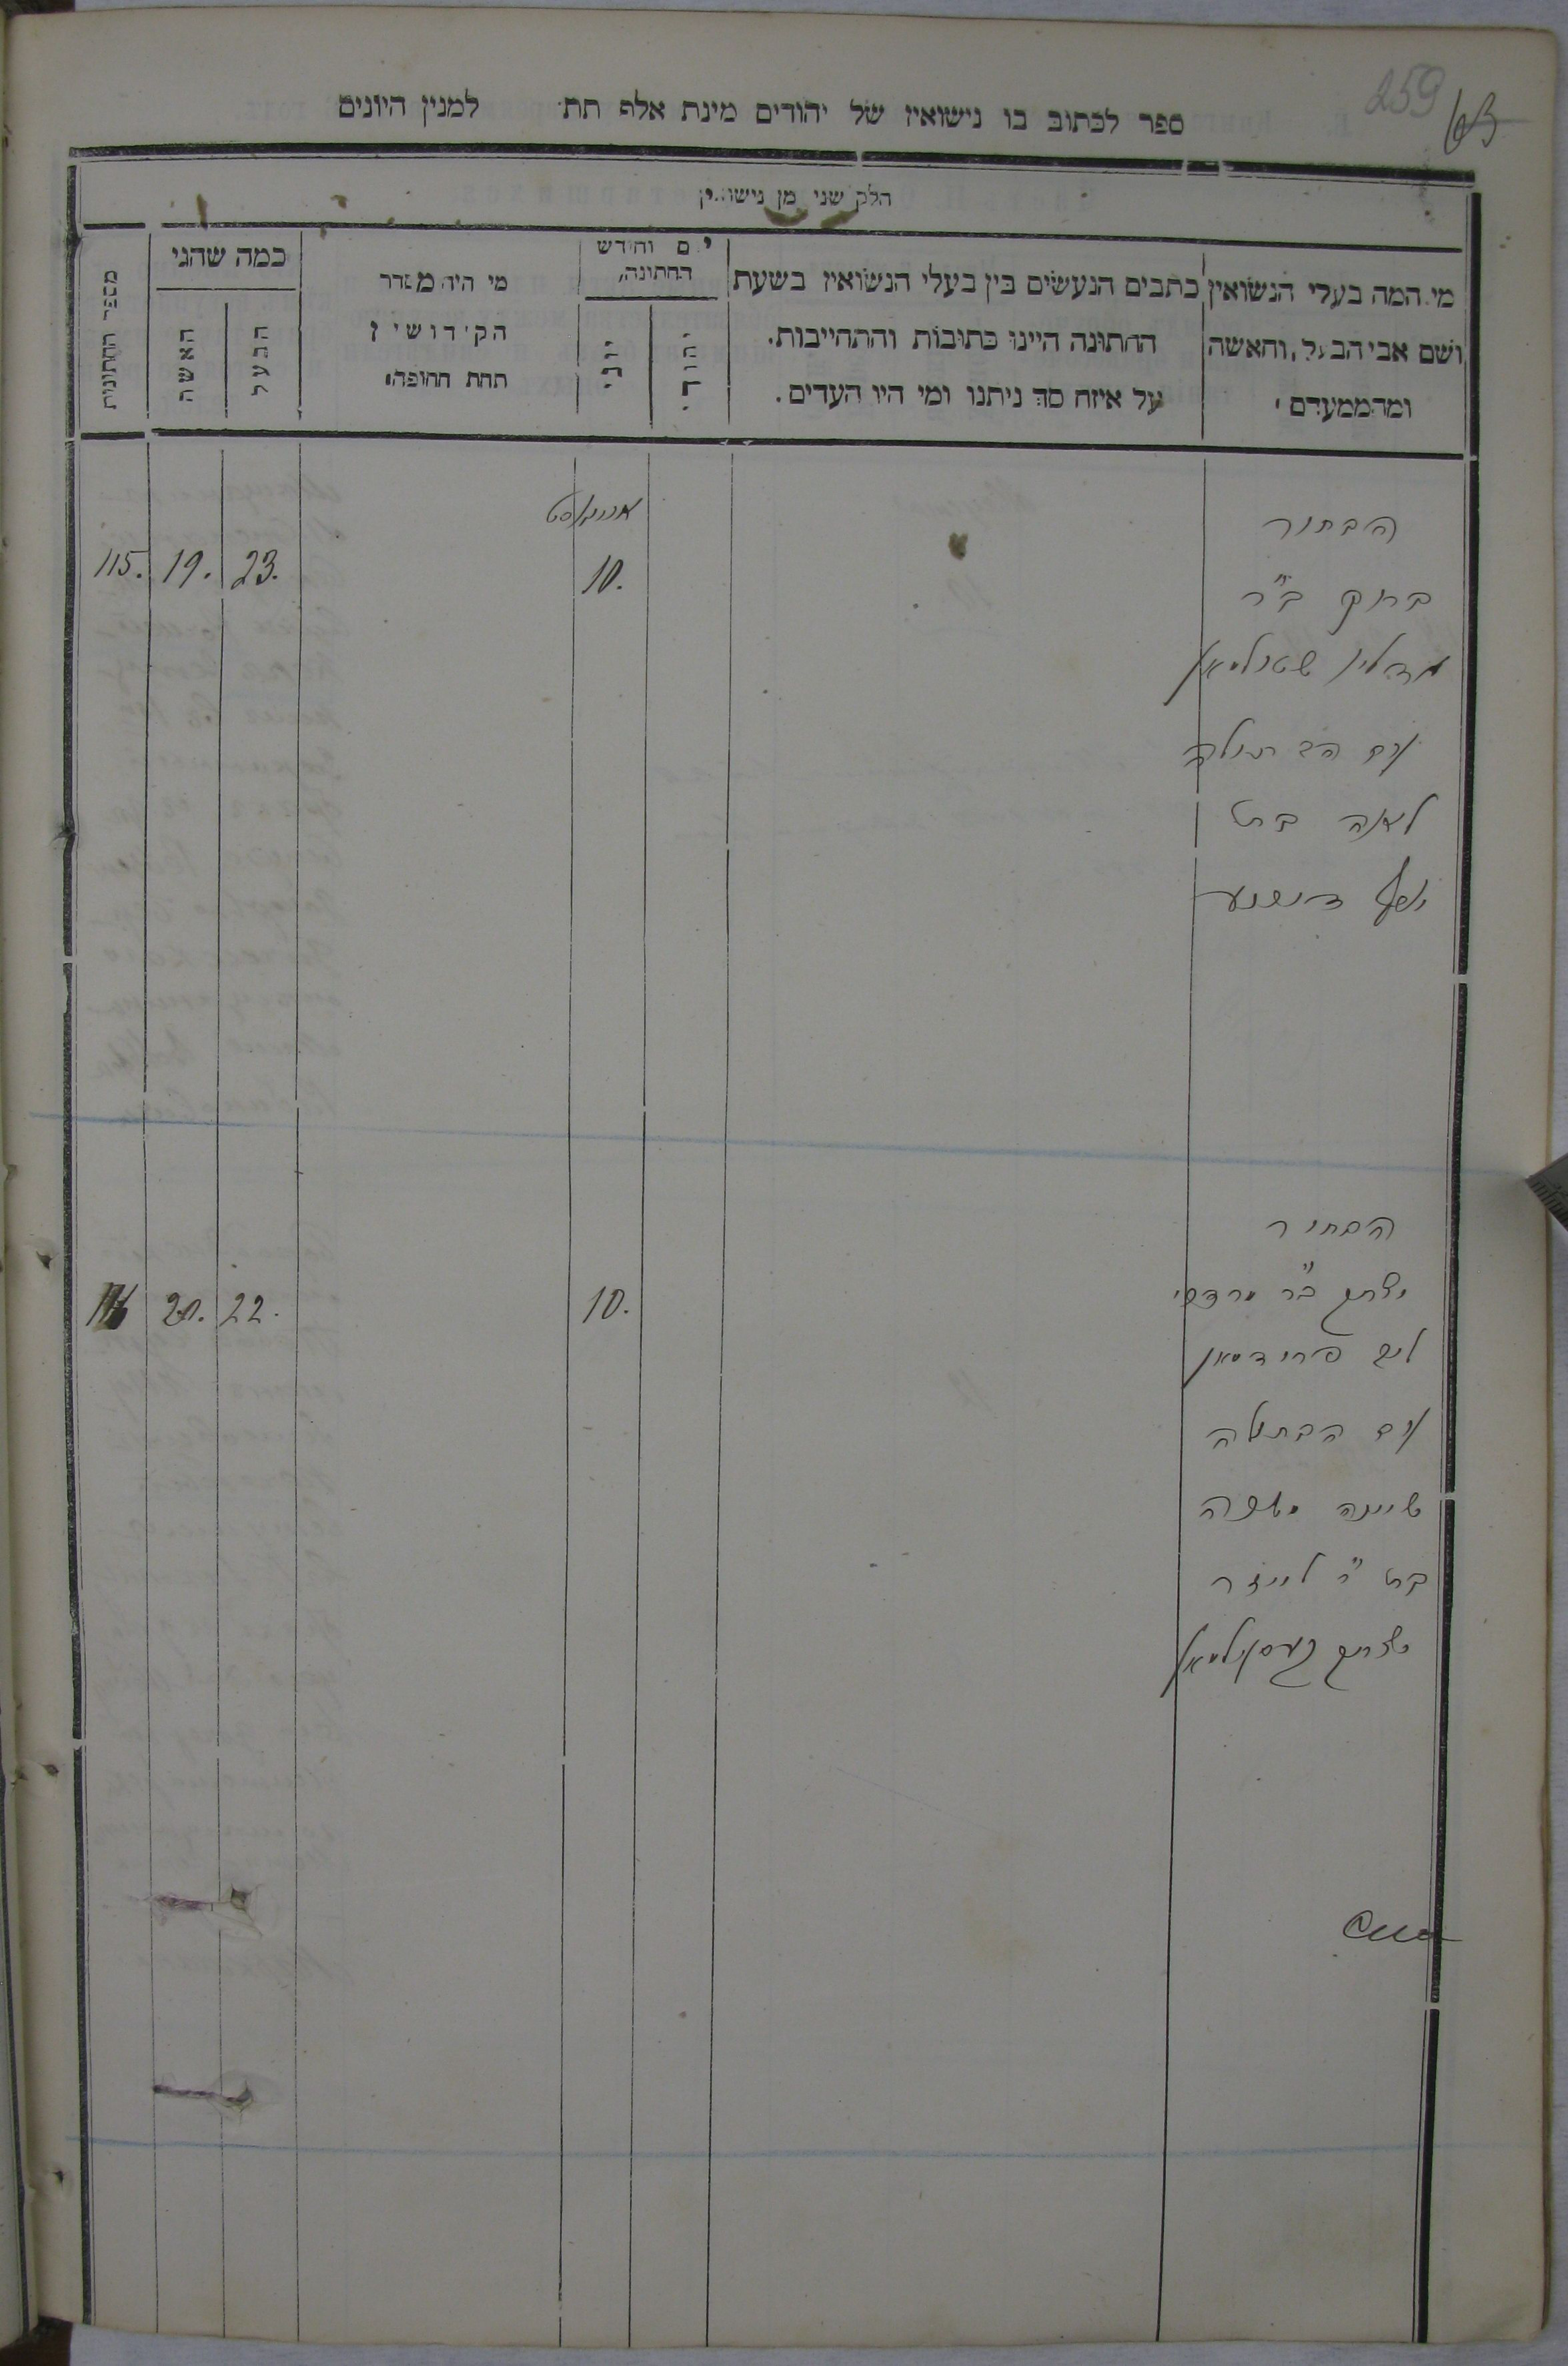 259
63
ספר לכתוב בו נישואין של יהודים מינת אלף תת למנין היונים
חלק שני מן נישואין
מי המה בעלי הנשואין
ושם אבי הבעל, והאשה
ומה מעמדם
כתבים הנעשים בין בעלי הנשואין בשעת
החתונה היינו כתובות והתחייבות.
על איזה סך ניתנו ומי היו העדים.
יום וחודש
החתונה,
יהודי
יוני
מי היה מסדר
הקידושין
תחת החופה
כמה שהני
הבעל
האשה
מספר החתונות
הבחור
אוגוסט
10.
23.
19.
115.
ב"ר
שטולמאן
עם הבתולה
לאה בת
יוסף
הבחור
יצחק ב"ר מרדכי
10.
22.
20.
116
ליב פרידמאן
עם הבתולה
שיינה
בת ר' לייזר
יצחק